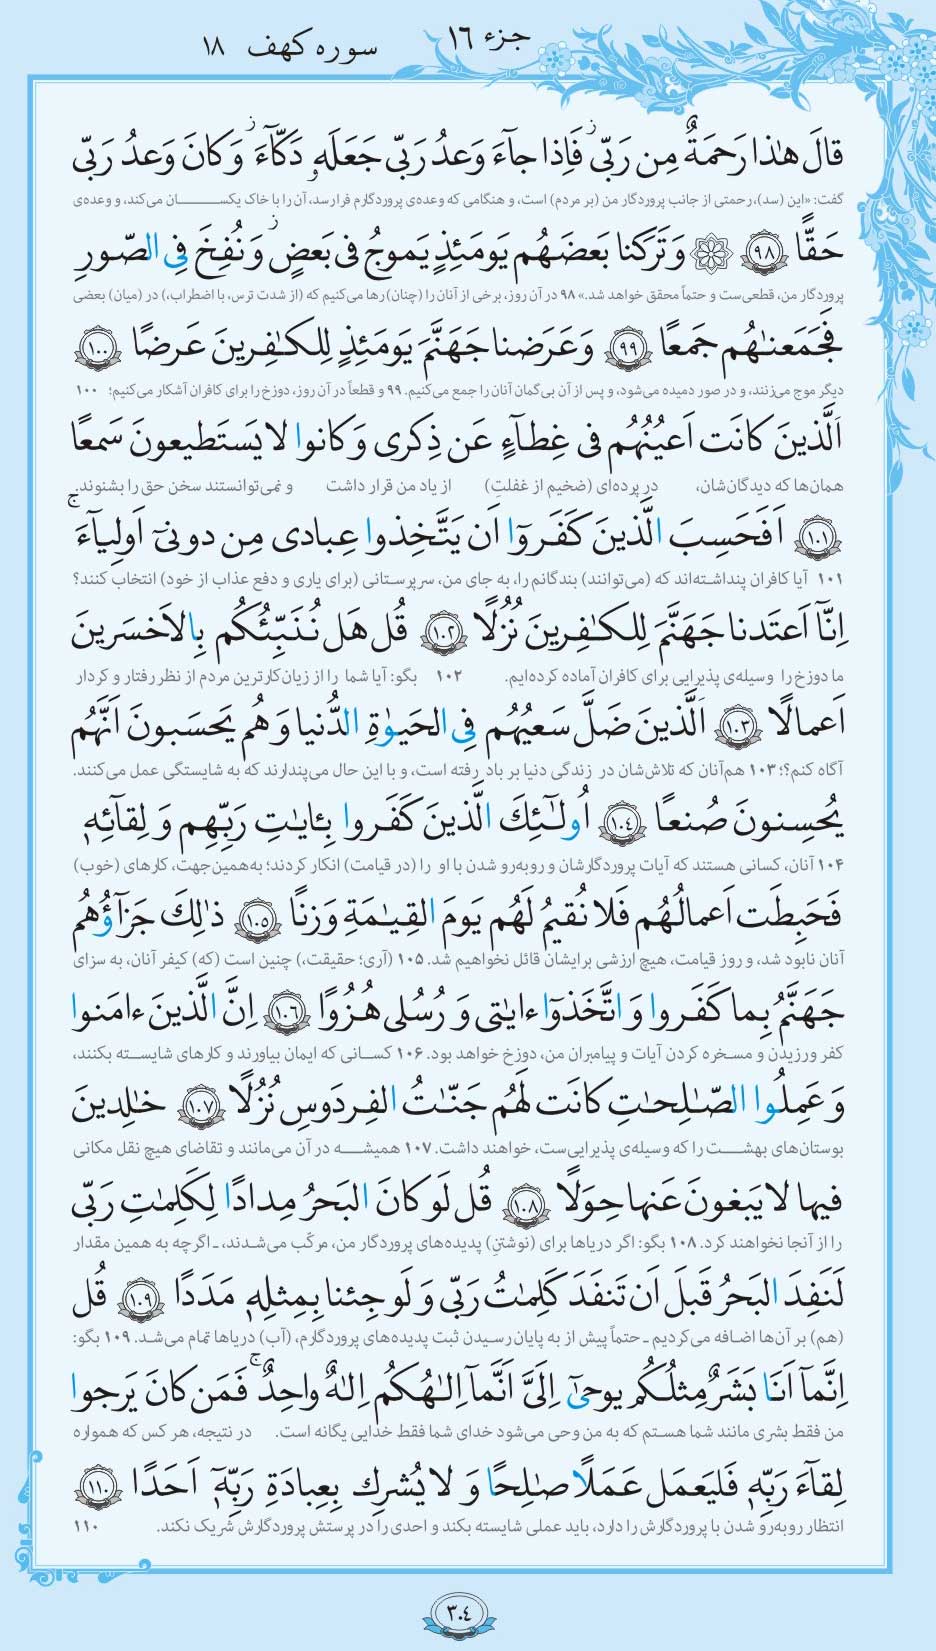 جزء ۱۶
سوره کهف ۱۸
قالَ هٰذا رَحمَةٌ مِن رَبّی فَاِذا جآءَ وَعدُ رَبّی جَعَلَهٗ دَکّآءَ وَ کانَ وَعدُ رَبّی
گفت: «این (سد)، رحمتی از جانب پروردگار من (بر مردم) است، و هنگامی که وعده‌ی پروردگارم فرا رسد، آن را با خاک یکسان می‌کند، و وعده‌ی
حَقًّا ﴿۹۸﴾ وَ تَرَکنا بَعضَهُم یَومَئِذٍ یَموجُ فی بَعضٍ وَ نُفِخَ فِی الصّورِ
پروردگار من، قطعی‌ست و حتماً محقق خواهد شد.» ۹۸ در آن روز، برخی از آنان را (چنان) رها می‌کنیم که (از شدت ترس، با اضطراب،) در (میان) بعضی
فَجَمَعنٰهُم جَمعًا ﴿۹۹﴾ وَ عَرَضنا جَهَنَّمَ یَومَئِذٍ لِلکٰفِرینَ عَرضًا ﴿۱۰۰﴾
دیگر موج می‌زنند، و در صور دمیده می‌شود، و پس از آن بی‌گمان آنان را جمع می‌کنیم. ۹۹ و قطعاً در آن روز، دوزخ را برای کافران آشکار می‌کنیم؛ ۱۰۰
اَلَّذینَ کانَت اَعیُنُهُم فی غِطآءٍ عَن ذِکری وَ کانوا لا یَستَطیعونَ سَمعًا
همان‌ها که دیدگان‌شان، در پرده‌ای (ضخیم از غفلتِ) از یاد من قرار داشت و نمی‌توانستند سخن حق را بشنوند.
﴿۱۰۱﴾ اَفَحَسِبَ الَّذینَ کَفَروٓا اَن یَتَّخِذوا عِبادی مِن دونیٓ اَولِیآءَ
۱۰۱ آیا کافران پنداشته‌اند که (می‌توانند) بندگانم را، به جای من، سرپرستانی (برای یاری و دفع عذاب از خود) انتخاب کنند؟
اِنّآ اَعتَدنا جَهَنَّمَ لِلکٰفِرینَ نُزُلًا ﴿۱۰۲﴾ قُل هَل نُنَبِّئُکُم بِالاَخسَرینَ
ما دوزخ را وسیله‌ی پذیرایی برای کافران آماده کرده‌ایم. ۱۰۲ بگو: آیا شما را از زیان‌کارترین مردم از نظر رفتار و کردار
اَعمالًا ﴿۱۰۳﴾ اَلَّذینَ ضَلَّ سَعیُهُم فِی الحَیوٰةِ الدُّنیا وَ هُم یَحسَبونَ اَنَّهُم
آگاه کنم؟؛ ۱۰۳ هم‌آنان که تلاش‌شان در زندگی دنیا بر باد رفته است، و با این حال می‌پندارند که به شایستگی عمل می‌کنند.
یُحسِنونَ صُنعًا ﴿۱۰۴﴾ اُولٰٓئِکَ الَّذینَ کَفَروا بِئایٰتِ رَبِّهِم وَ لِقآئِهٖ
۱۰۴ آنان، کسانی هستند که آیات پروردگارشان و روبه‌رو شدن با او را (در قیامت) انکار کردند؛ به‌همین‌جهت، کارهای (خوب)
فَحَبِطَت اَعمالُهُم فَلا نُقیمُ لَهُم یَومَ القِیٰمَةِ وَزنًا ﴿۱۰۵﴾ ذٰلِکَ جَزآؤُهُم
آنان نابود شد، و روز قیامت، هیچ ارزشی برایشان قائل نخواهیم شد. ۱۰۵ (آری؛ حقیقت،) چنین است (که) کیفر آنان، به سزای
جَهَنَّمُ بِما کَفَروا وَ اتَّخَذوٓا ءایٰتی وَ رُسُلی هُزُوًا ﴿۱۰۶﴾ اِنَّ الَّذینَ ءامَنوا
کفر ورزیدن و مسخره کردن آیات و پیامبران من، دوزخ خواهد بود. ۱۰۶ کسانی که ایمان بیاورند و کارهای شایسته بکنند،
وَ عَمِلُوا الصّٰلِحٰتِ کانَت لَهُم جَنّٰتُ الفِردَوسِ نُزُلًا ﴿۱۰۷﴾ خٰلِدینَ
بوستان‌های بهشت را که وسیله‌ی پذیرایی‌ست، خواهند داشت. ۱۰۷ همیشه در آن می‌مانند و تقاضای هیچ نقل مکانی
فیها لا یَبغونَ عَنها حِوَلًا ﴿۱۰۸﴾ قُل لَو کانَ البَحرُ مِدادًا لِکَلِمٰتِ رَبّی
را از آنجا نخواهند کرد. ۱۰۸ بگو: اگر دریاها برای (نوشتنِ) پدیده‌های پروردگار من، مرکّب می‌شدند، ـ اگرچه به همین مقدار
لَنَفِدَ البَحرُ قَبلَ اَن تَنفَدَ کَلِمٰتُ رَبّی وَ لَو جِئنا بِمِثلِهٖ مَدَدًا ﴿۱۰۹﴾ قُل
(هم) بر آن‌ها اضافه می‌کردیم ـ حتماً پیش از به پایان رسیدن ثبت پدیده‌های پروردگارم، (آب) دریاها تمام می‌شد. ۱۰۹ بگو:
اِنَّمآ اَنَا بَشَرٌ مِثلُکُم یوحیٰٓ اِلَیَّ اَنَّمآ اِلٰهُکُم اِلٰهٌ واحِدٌ فَمَن کانَ یَرجوا
من فقط بشری مانند شما هستم که به من وحی می‌شود خدای شما فقط خدایی یگانه است. در نتیجه، هر کس که همواره
لِقآءَ رَبِّهٖ فَلیَعمَل عَمَلًا صٰلِحًا وَ لا یُشرِک بِعِبادَةِ رَبِّهٖٓ اَحَدًا ﴿۱۱۰﴾
انتظار روبه‌رو شدن با پروردگارش را دارد، باید عملی شایسته بکند و احدی را در پرستش پروردگارش شریک نکند. ۱۱۰
۳۰۴